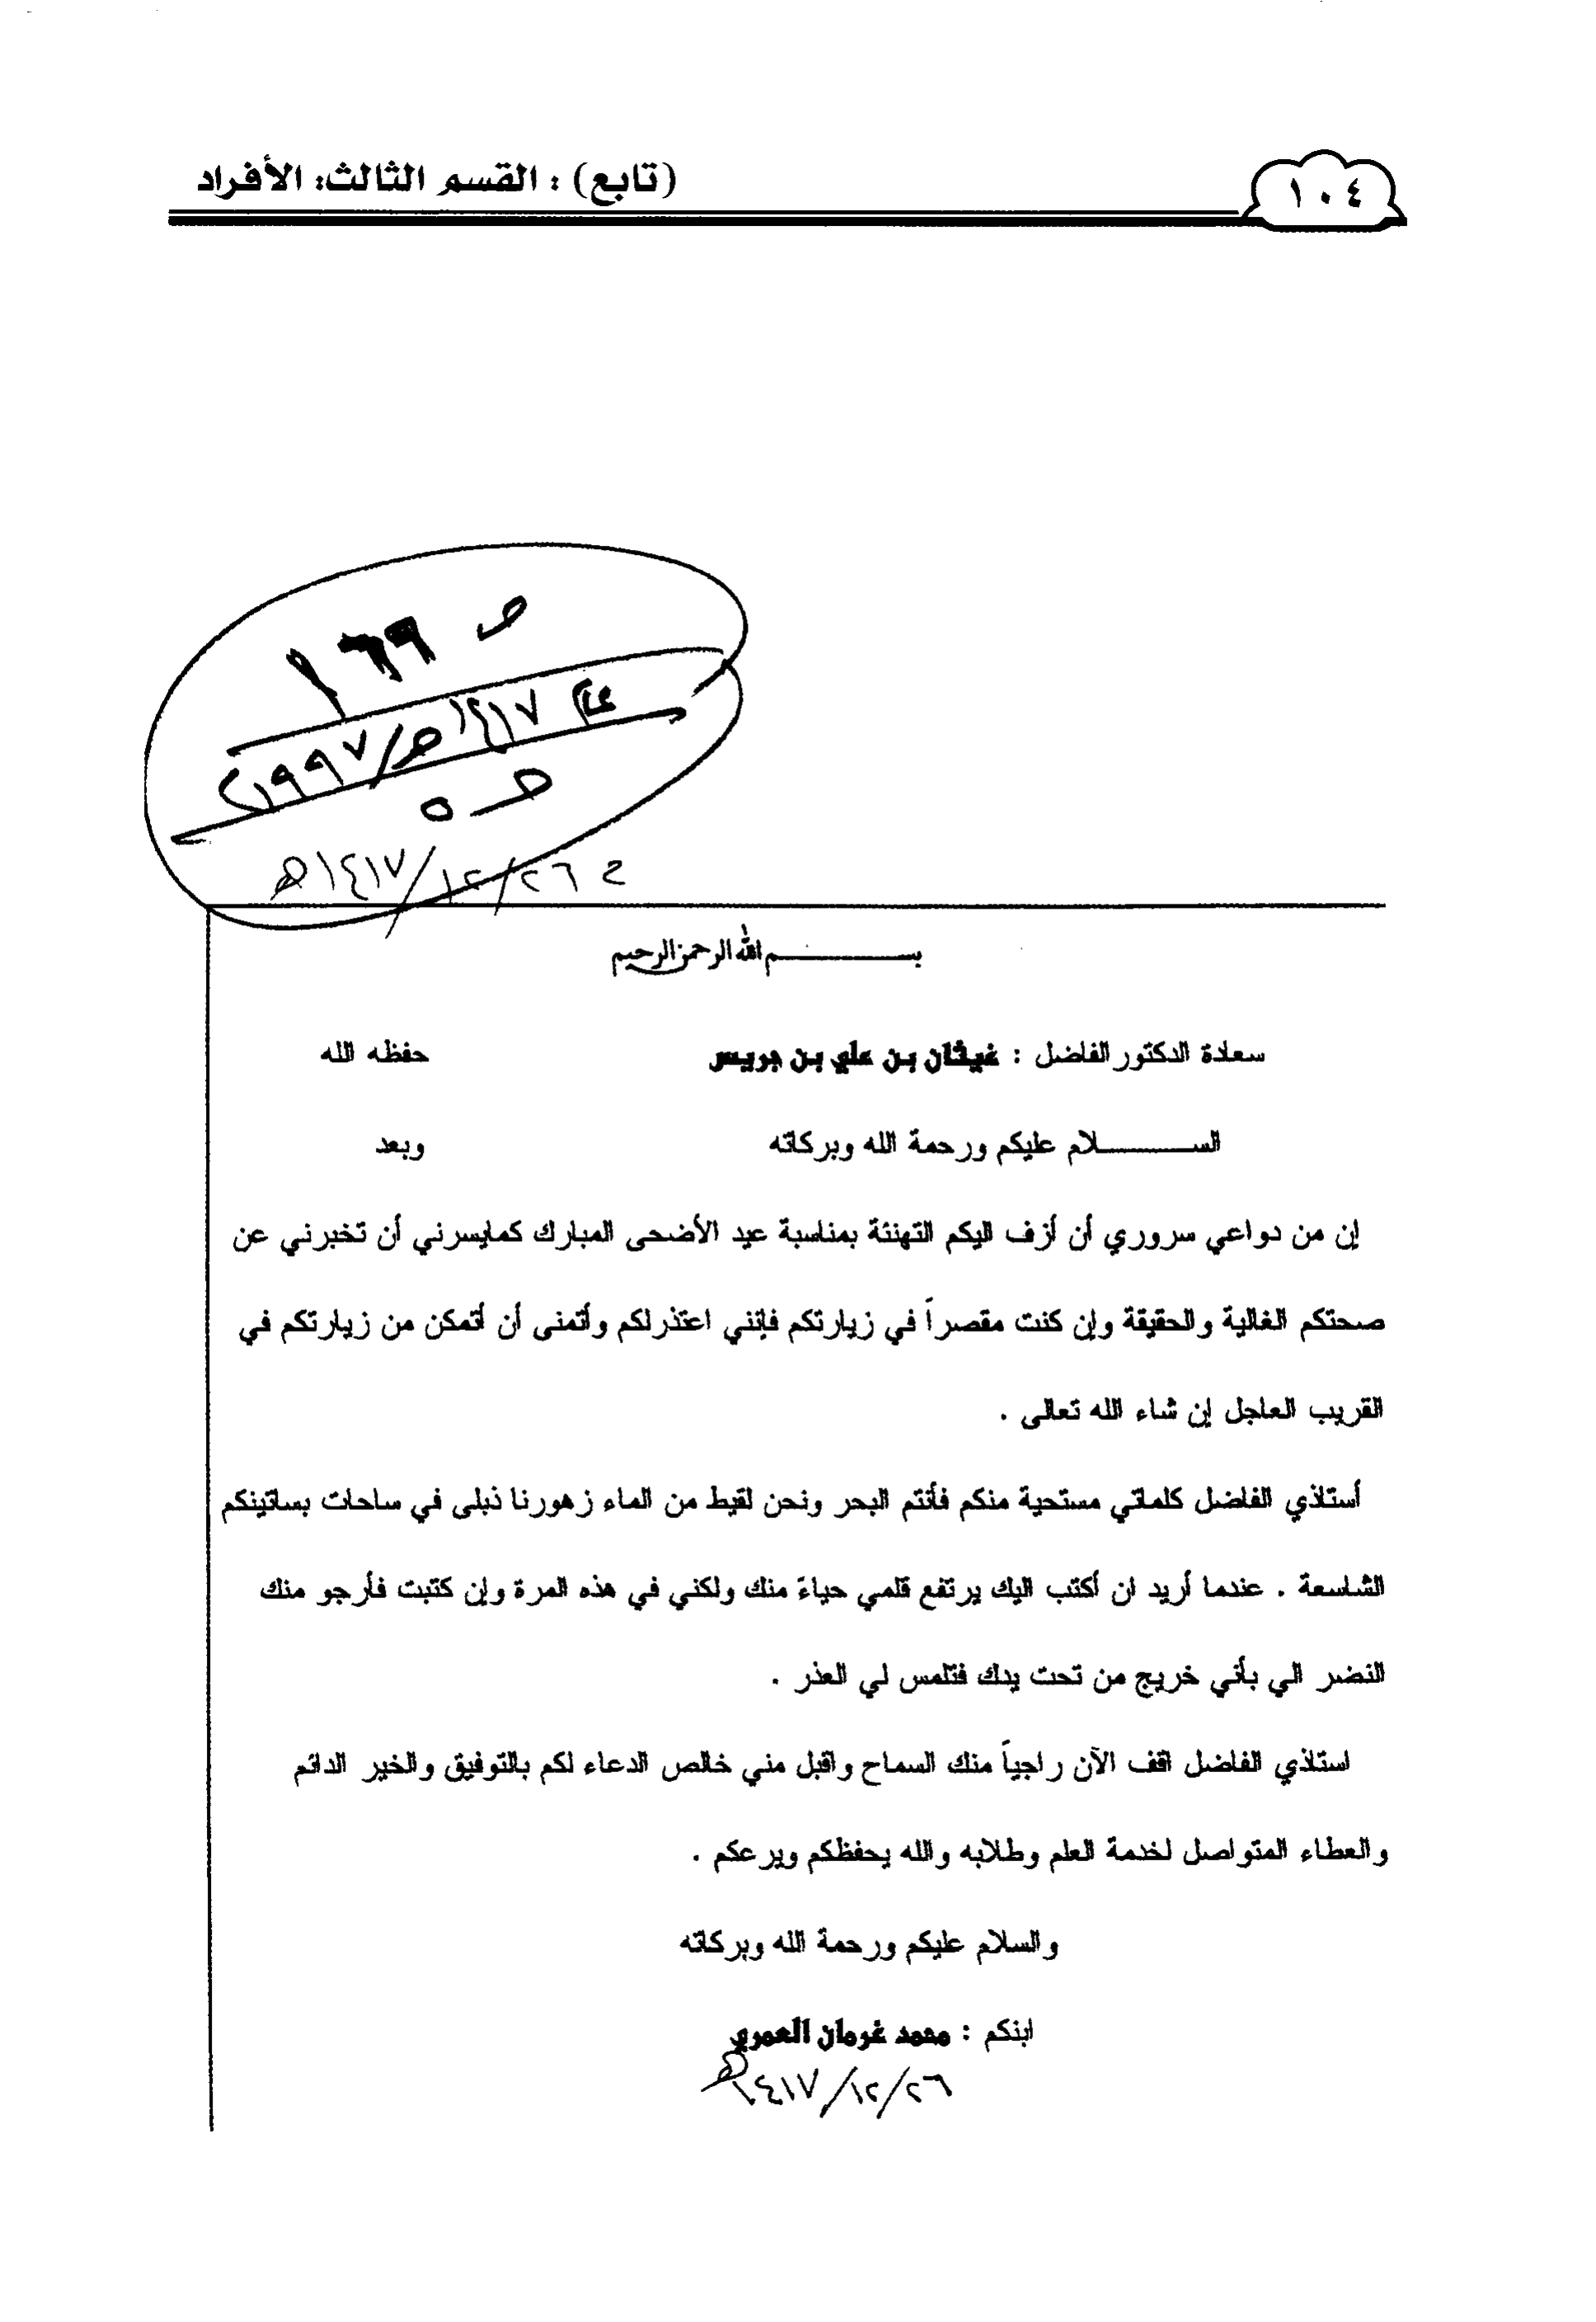 ١٠٤
(تابع) : القسم الثالث: الأفراد
عام ١٤١٧هـ/١٩٩٧م
ص ٥
ح ١٤١٧/١٢/٢٦هـ
بســـم الله الرحمن الرحيم
سعادة الدكتور الفاضل : غيثان بن علي بن جريس حفظه الله
الســـلام عليكم ورحمة الله وبركاته وبعد
إن من دواعي سروري أن أزف اليكم التهنئة بمناسبة عيد الأضحى المبارك كمايسرني أن تخبرني عن
صحتكم الغالية والحقيقة وإن كنت مقصراً في زيارتكم فإنني اعتذرلكم وأتمنى أن أتمكن من زيارتكم في
القريب العاجل إن شاء الله تعالى .
أستاذي الفاضل كلماتي مستحية منكم فأنتم البحر ونحن لقيط من الماء زهورنا ذبلى في ساحات بساتينكم
الشاسعة . عندما أريد ان أكتب اليك يرتفع قلمي حياءً منك ولكني في هذه المرة وإن كتبت فأرجو منك
النضر الي بأني خريج من تحت يدك فتلمس لي العذر .
استاذي الفاضل اقف الآن راجياً منك السماح واقبل مني خالص الدعاء لكم بالتوفيق والخير الدائم
والعطاء المتواصل لخدمة العلم وطلابه والله يحفظكم ويرعكم .
والسلام عليكم ورحمة الله وبركاته
ابنكم : محمد غرمان العمري
١٤١٧/١٢/٢٦هـ